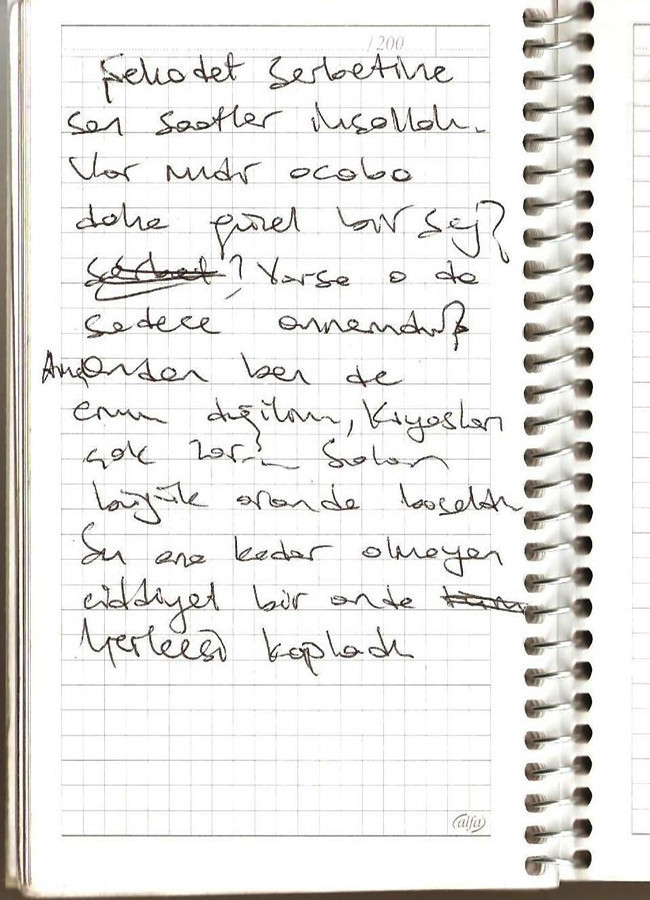 /200
Şehadet Şerbetine
son saatler inşallah.
Var mıdır acaba
daha güzel bir şey?
? Varsa o da
sadece annemdir?
Ama ondan ben de
emin değilim, Kıyaslan
çok zor. Salon
büyük oranda boşaldı
Şu ana kadar olmayan
ciddiyet bir anda
herkesi kapladı
alfa